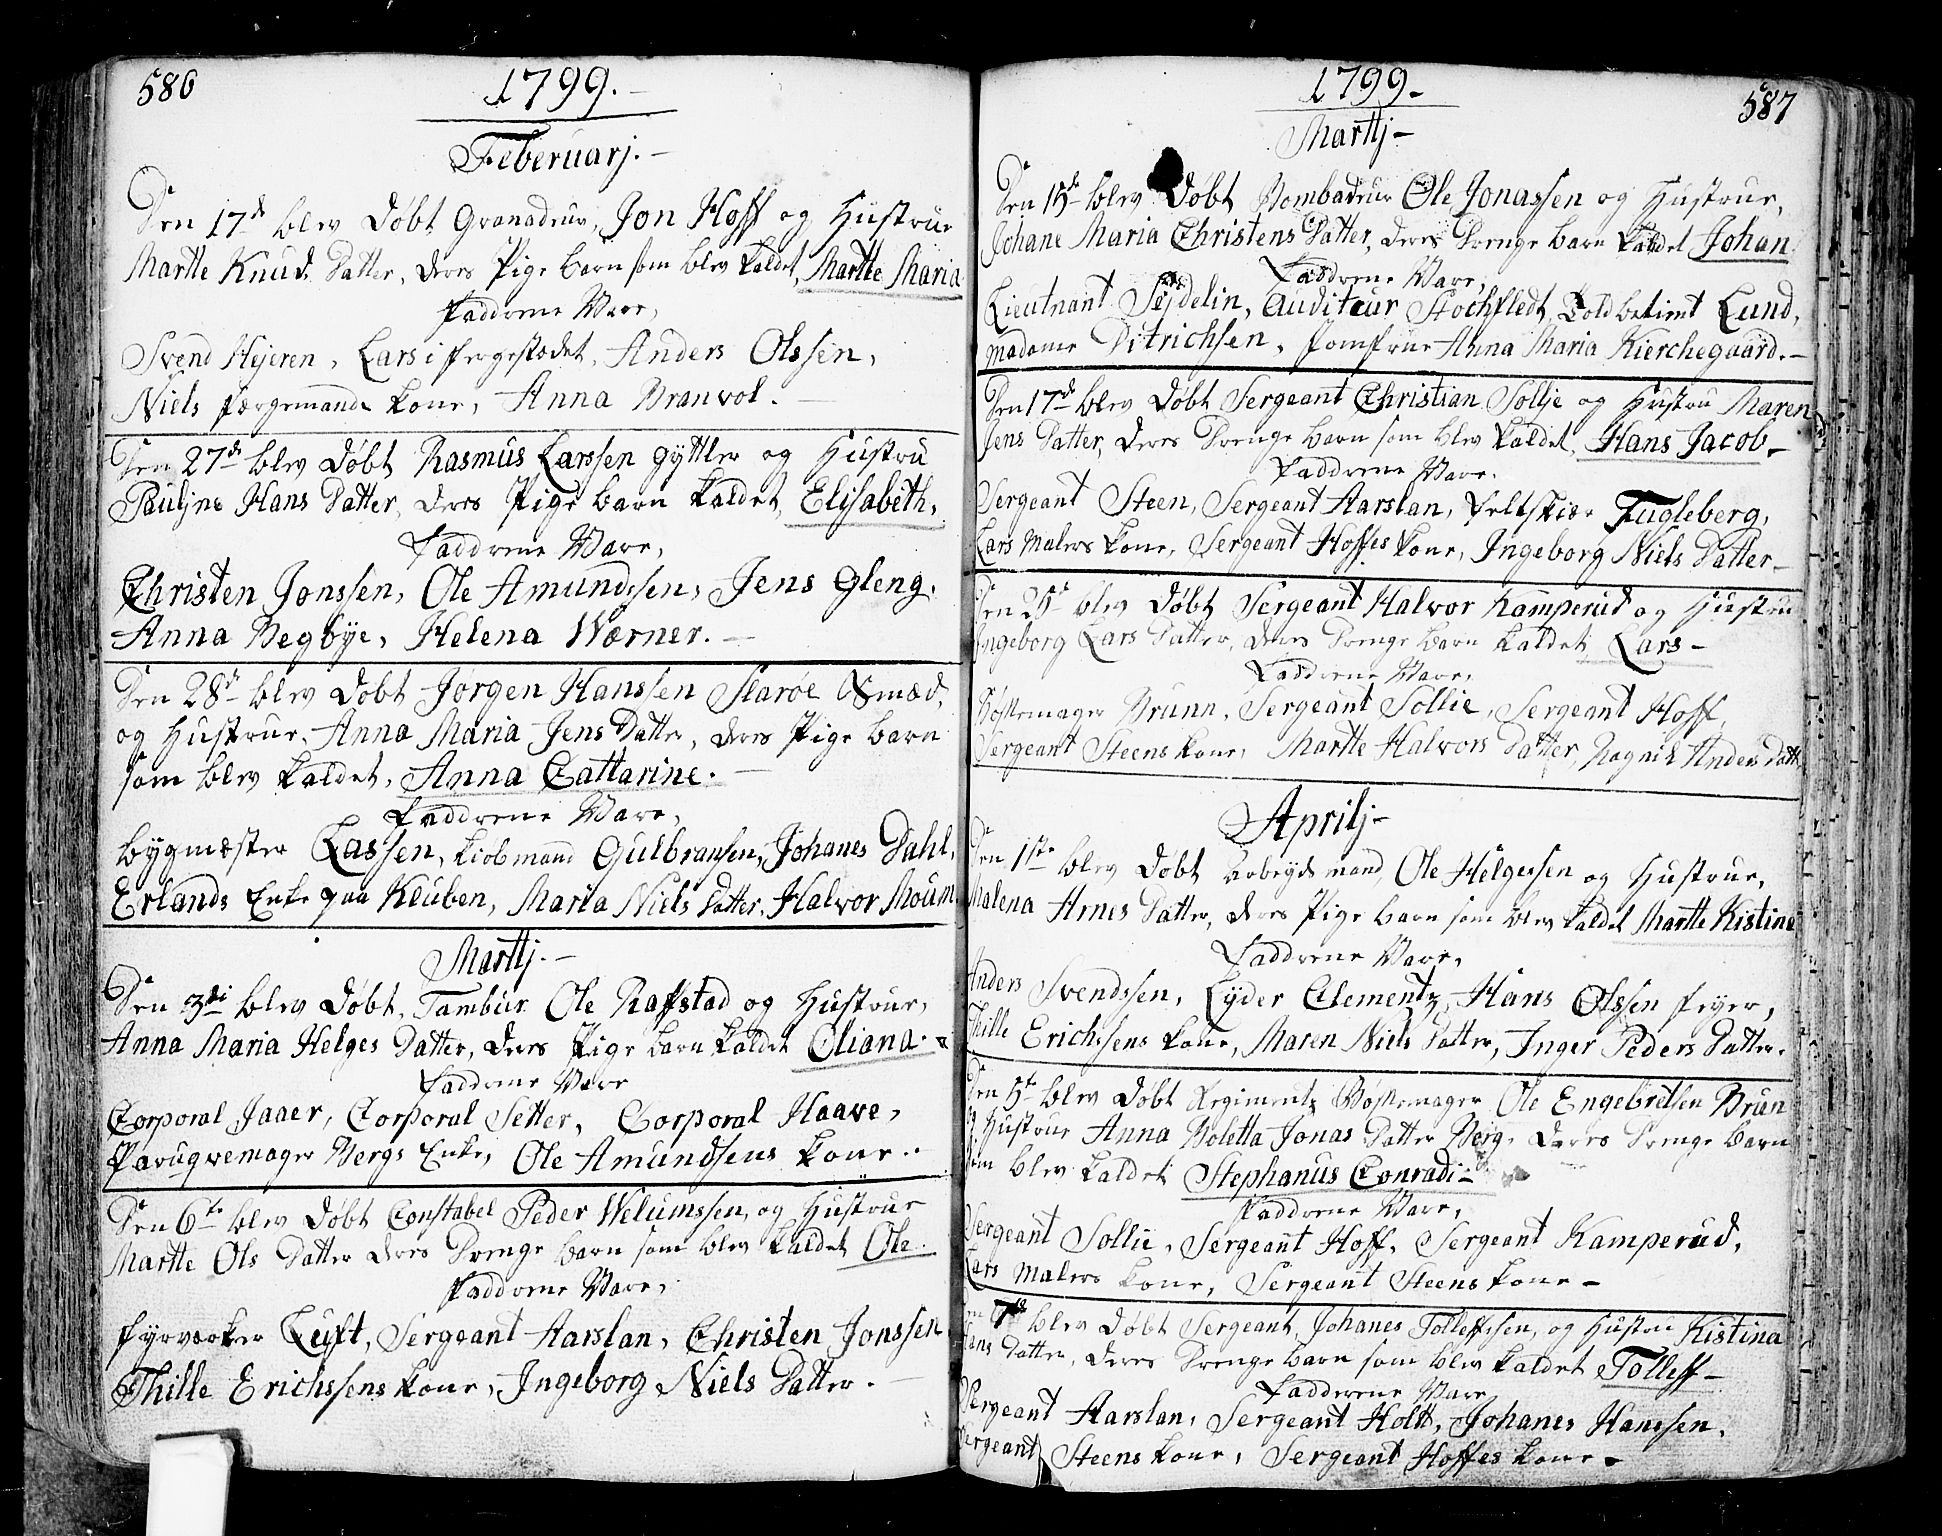 586
1799.
Februarj.
Den 17d blev Døbt Granadeur, Jon Hoff og Hustrue
Martte Knuds Datter, deres Pige barn som blev kaldet, Martte Maria
Fadderne Vare,
Svend Hejeren, Lars i fergestædet, Anders Olssen,
Niels færgemands kone, Anna Branvol.
Den 27d blev Døbt Rasmus Larssen gyttler og Hustru
Pauljne Hans Datter, deres Pige barn kaldet, Elisabeth,
Fadderne Vare,
Christen Jonssen, Ole Amundssen, Jens Gleng.
Anna Begbye, Helena Wærner.
Den 28d blev Døbt Jørgen Hanssen Slarøe Smæd,
og Hustrue, Anna Maria Jens Datter, deres Pige barn
som blev kaldet, Anna Cattarine.
Fadderne Vare,
bygmæster Lassen, kiobmand Gulbransen, Johanes Dahl,
Erlands Enke paa Kluben, Maria Niels Datter, Halvor Moum
Marttj.
Den 3di blev Døbt, Tambur Ole Raffstad og Hustrue,
Anna Maria Helges Datter, deres Pige barn kaldet Oliana.
Fadderne Vare
Corporal Jaaer, Corporal Setter, Corporal Haave,
Paruqvemager Bergs Enke, Ole Amundsens kone.
Den 6te blev Døbt Constabel Peder Welumssen, og Hustrue
Martte Ols Datter deres Drenge barn som blev kaldet Ole.
Fadderne Vare,
fyrværker Luft, Sergeant Aarslan, Christen Jonssen
Thille Erichssens kone, Ingeborg Niels Datter.
587
1799.
Marttj
Den 15de blev Døbt Bombadeur Ole Jonassen og Hustrue,
Johane Maria Christens Datter, deres Drenge barn kaldet Johan.
Fadderne Vare,
Lieutnant Sejdelin, Auditeur Stochfledt, Toldbetient Lund,
Madame Ditrichsen, Jomfrue Anna Maria Kierchegaard.
Den 17d blev Døbt Sergeant Christian Sollje og Hustru Maren
Jens Datter, deres Drenge barn som blev kaldet, Hans Jacob
Fadderne Vare.
Sergeant Steen, Sergeant Aarslan, Feltskiær Fugleberg,
Lars Malers kone, Sergeant Hoffes kone, Ingeborg Niels Datter
Den 25d blev Døbt Sergeant Halvor Kamperud og Hustru
Ingeborg Lars Datter, deres Drenge barn kaldet Lars
Fadderne Vare,
Bøssemager Brunn, Sergeant Sollie, Sergeant Hoff,
Sergeant Steens kone, Martte Halvors Datter, Ragnil Anders Datt
Aprilj
Den 1ste blev Døbt Arbeyds mand, Ole Helgessen og Hustrue,
Malena Arnes Datter, deres Pige barn som blev kaldet Martte Kistine
Fadderne Vare,
Anders Svendssen, Lyder Clementz, Hans Olssen feyer,
Thille Erichssens kone, Maren Niels Datter, Inger Peders Datter.
Den 5te blev Døbt Regimentz Bøssemager Ole Engebretsen Brun
og Hustrue Anna Boletta Jonas Datter Berg, deres Drenge barn
som blev kaldet Stephanus Conradi
Fadderne Vare,
Sergeant Sollie, Sergeant Hoff, Sergeant Kamperud,
Lars Malers kone, Sergeant Steens kone
Den 7de blev Døbt Sergeant, Johanes Tolleffssen, og Hustru Kistina
Hans Datter, deres Drenge barn som blev kaldet Tolleff
Fadderne Vare
Sergeant Aarslan, Sergeant Holtt, Johanes Hanssen,
Sergeant Steens kone, Sergeant Hoffes kone